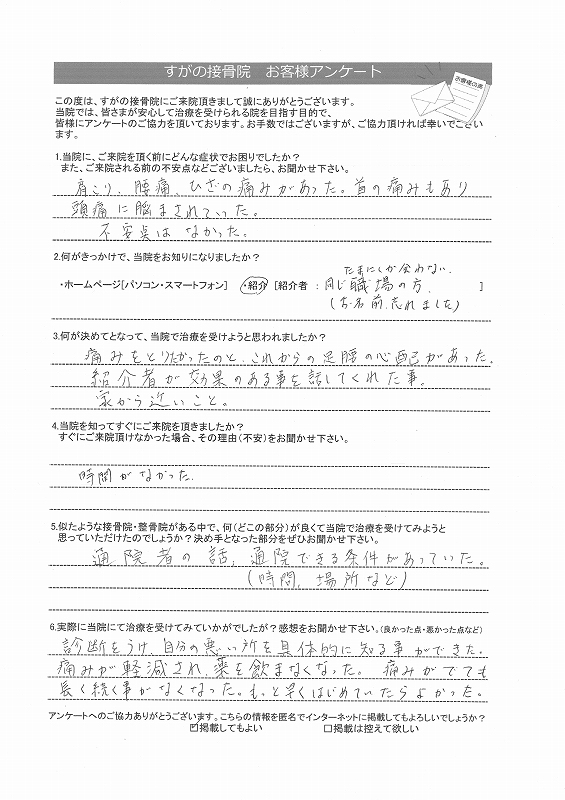 すがの接骨院 お客様アンケート
お客様の声
この度は、すがの接骨院にご来院頂きまして誠にありがとうございます。
当院では、皆さまが安心して治療を受けられる院を目指す目的で、
皆様にアンケートのご協力を頂いております。お手数ではございますが、ご協力頂ければ幸いでござい
ます。
1.当院に、ご来院を頂く前にどんな症状でお困りでしたか?
また、ご来院される前の不安点などございましたら、お聞かせ下さい。
肩こり、腰痛、ひざの痛みがあった。首の痛みもあり
頭痛に脳まされていった。
不安点はなかった。
2.何がきっかけで、当院をお知りになりましたか?
たまにしか会わない、
・ホームページ[パソコン・スマートフォン] ・紹介 [紹介者 : 同じ職場の方、 ]
(お名前、忘れました)
3.何が決めてとなって、当院で治療を受けようと思われましたか?
痛みをとりたかったのと、これからの足腰の心配があった。
紹介者が効果のある事を話してくれた事。
家から近いこと。
4.当院を知ってすぐにご来院を頂きましたか?
すぐにご来院頂けなかった場合、その理由(不安)をお聞かせ下さい。
時間がなかった。
5.似たような接骨院・整骨院がある中で、何(どこの部分)が良くて当院で治療を受けてみようと
思っていただけたのでしょうか?決め手となった部分をぜひお聞かせ下さい。
通院者の話、通院できる条件があっていた。
(時間、場所など)
6.実際に当院にて治療を受けてみていかがでしたが?感想をお聞かせ下さい。(良かった点・悪かった点など)
診断をうけ、自分の悪い所を具体的に知る事ができた。
痛みが軽減され、薬を飲まなくなった。 痛みがでても
長く続く事がなくなった。もっと早くはじめていたらよかった。
アンケートへのご協力ありがとうございます。こちらの情報を匿名でインターネットに掲載してもよろしいでしょうか?
☑掲載してもよい □掲載は控えて欲しい